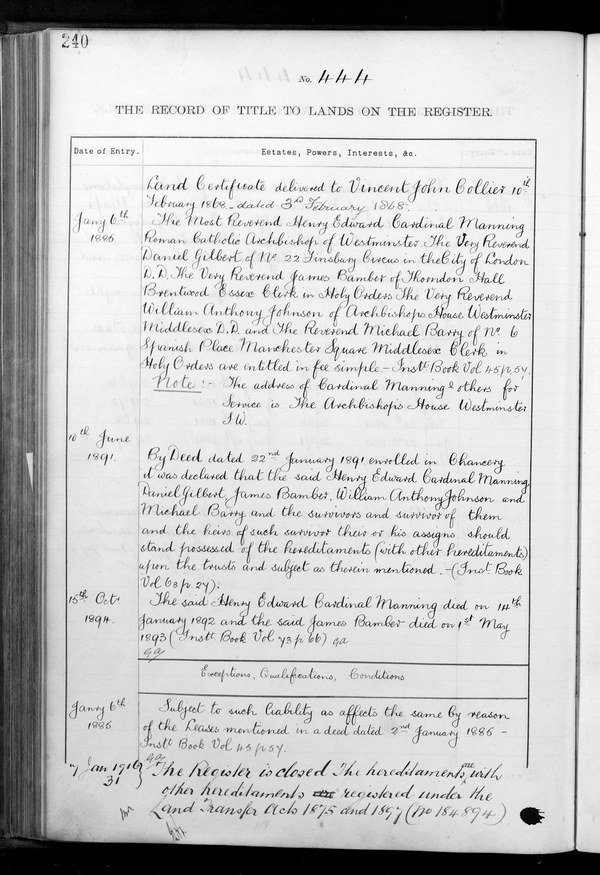 240
No. 444
THE RECORD OF TITLE TO LANDS ON THE REGISTER
Date of Entry.
Estates, Powers, Interests, &c.
Land Certificate delivered to Vincent John Collier 10th
February 1868 - dated 3rd February 1868.
Jany 6th
1886
The Most Reverend Henry Edward Cardinal Manning
Roman Catholic Archbishop of Westminster The Very Reverend
Daniel Gilbert of No. 22 Finsbury Circus in the City of London
D.D. The Very Reverend James Bamber of Thorndon Hall
Brentwood Essex Clerk in Holy Orders The Very Reverend
William Anthony Johnson of Archbishops House Westminster
Middlesex D.D. and The Reverend Michael Barry of No. 6
Spanish Place Manchester Square Middlesex Clerk in
Holy Orders are entitled in fee simple - Instt Book Vol 45 p. 57.
Note :- The address of Cardinal Manning & others for
Service is The Archbishops House Westminster
S.W.
10th June
1891.
By Deed dated 22nd January 1891 enrolled in Chancery
it was declared that the said Henry Edward Cardinal Manning
Daniel Gilbert, James Bamber, William Anthony Johnson and
Michael Barry and the survivors and survivor of them
and the heirs of such survivor their or his assigns should
stand possessed of the hereditaments (with other hereditaments)
upon the trusts and subject as therein mentioned. - (Inst Book
Vol 63 p. 27).
15th Octr
1894.
The said Henry Edward Cardinal Manning died on 14th
January 1892 and the said James Bamber died on 1st May
1893 (Instt Book Vol 73 p 66)
Exceptions, Qualifications, Conditions
Janry 6th
1886
Subject to such liability as affects the same by reason
of the Leases mentioned in a deed dated 2nd January 1886 -
Instt Book Vol 45 p 57.
Jan 1916
31
The Register is closed The hereditaments are with
other hereditaments registered under the
Land Transfer Acts 1875 and 1897 (No 184894)